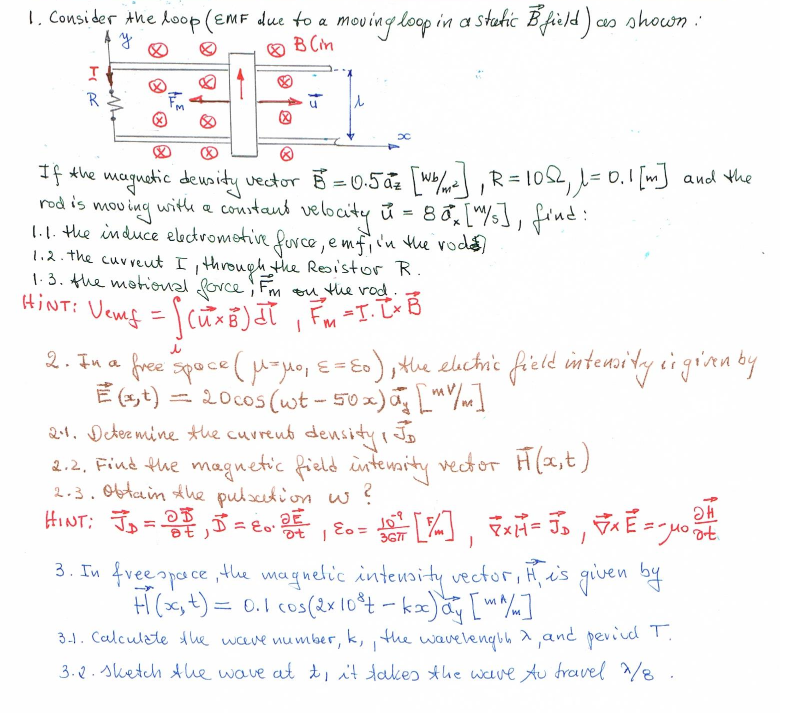 1. Consider the loop (EMF due to a moving loop in a static B⃗ field) as shown :
y
B (in
I
R
F⃗m
u⃗
l
x
If the magnetic density vector B⃗ = 0.5 a⃗z [Wb/m²], R = 10Ω, l = 0.1 [m] and the
rod is moving with a constant velocity u⃗ = 8 a⃗x [m/s], find :
1.1. the induce electromotive force, emf, in the rod
1.2. the current I, through the Resistor R.
1.3. the motional force, F⃗m on the rod.
HINT: Vemf = ∫l (u⃗ × B⃗) dl⃗ , F⃗m = I. L⃗ × B⃗
2. In a free space ( μ=μ0, ε=ε0 ), the electric field intensity is given by
E⃗ (x,t) = 20cos(wt − 50x) a⃗y [mV/m]
2.1. Determine the current density, J⃗D
2.2. Find the magnetic field intensity vector H⃗(x,t)
2.3. Obtain the pulsation w ?
HINT: J⃗D = ∂D⃗/∂t , D⃗ = ε0. ∂E⃗/∂t , ε0 = 10⁻⁹/36π [F/m] , ∇⃗×H⃗ = J⃗D , ∇⃗×E⃗ = −μ0 ∂H⃗/∂t
3. In freespace, the magnetic intensity vector, H⃗, is given by
H⃗(x,t) = 0.1 cos(2×10⁸t − kx) a⃗y [mA/m]
3.1. Calculate the wave number, k, , the wavelength λ, and period T.
3.2. sketch the wave at t, it takes the wave to travel λ/8 .